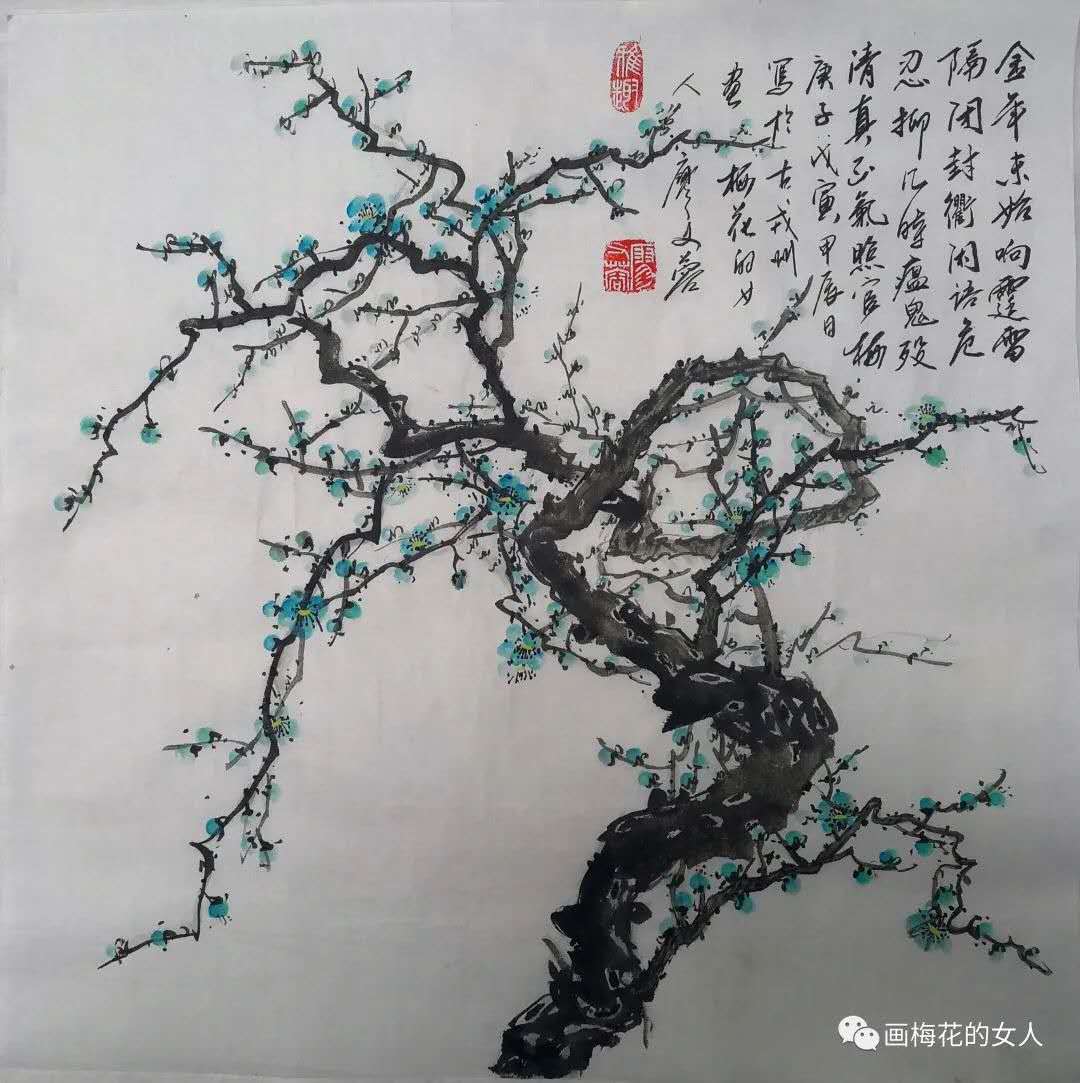 金年末始响霆雷
隔闭封衢闲语危
忍抑几时瘟鬼殁
清真正氣照官梅
庚子戊寅甲辰日
写於古戎州
画梅花的女
人 廖文蓉
雅趣
画梅花的女人